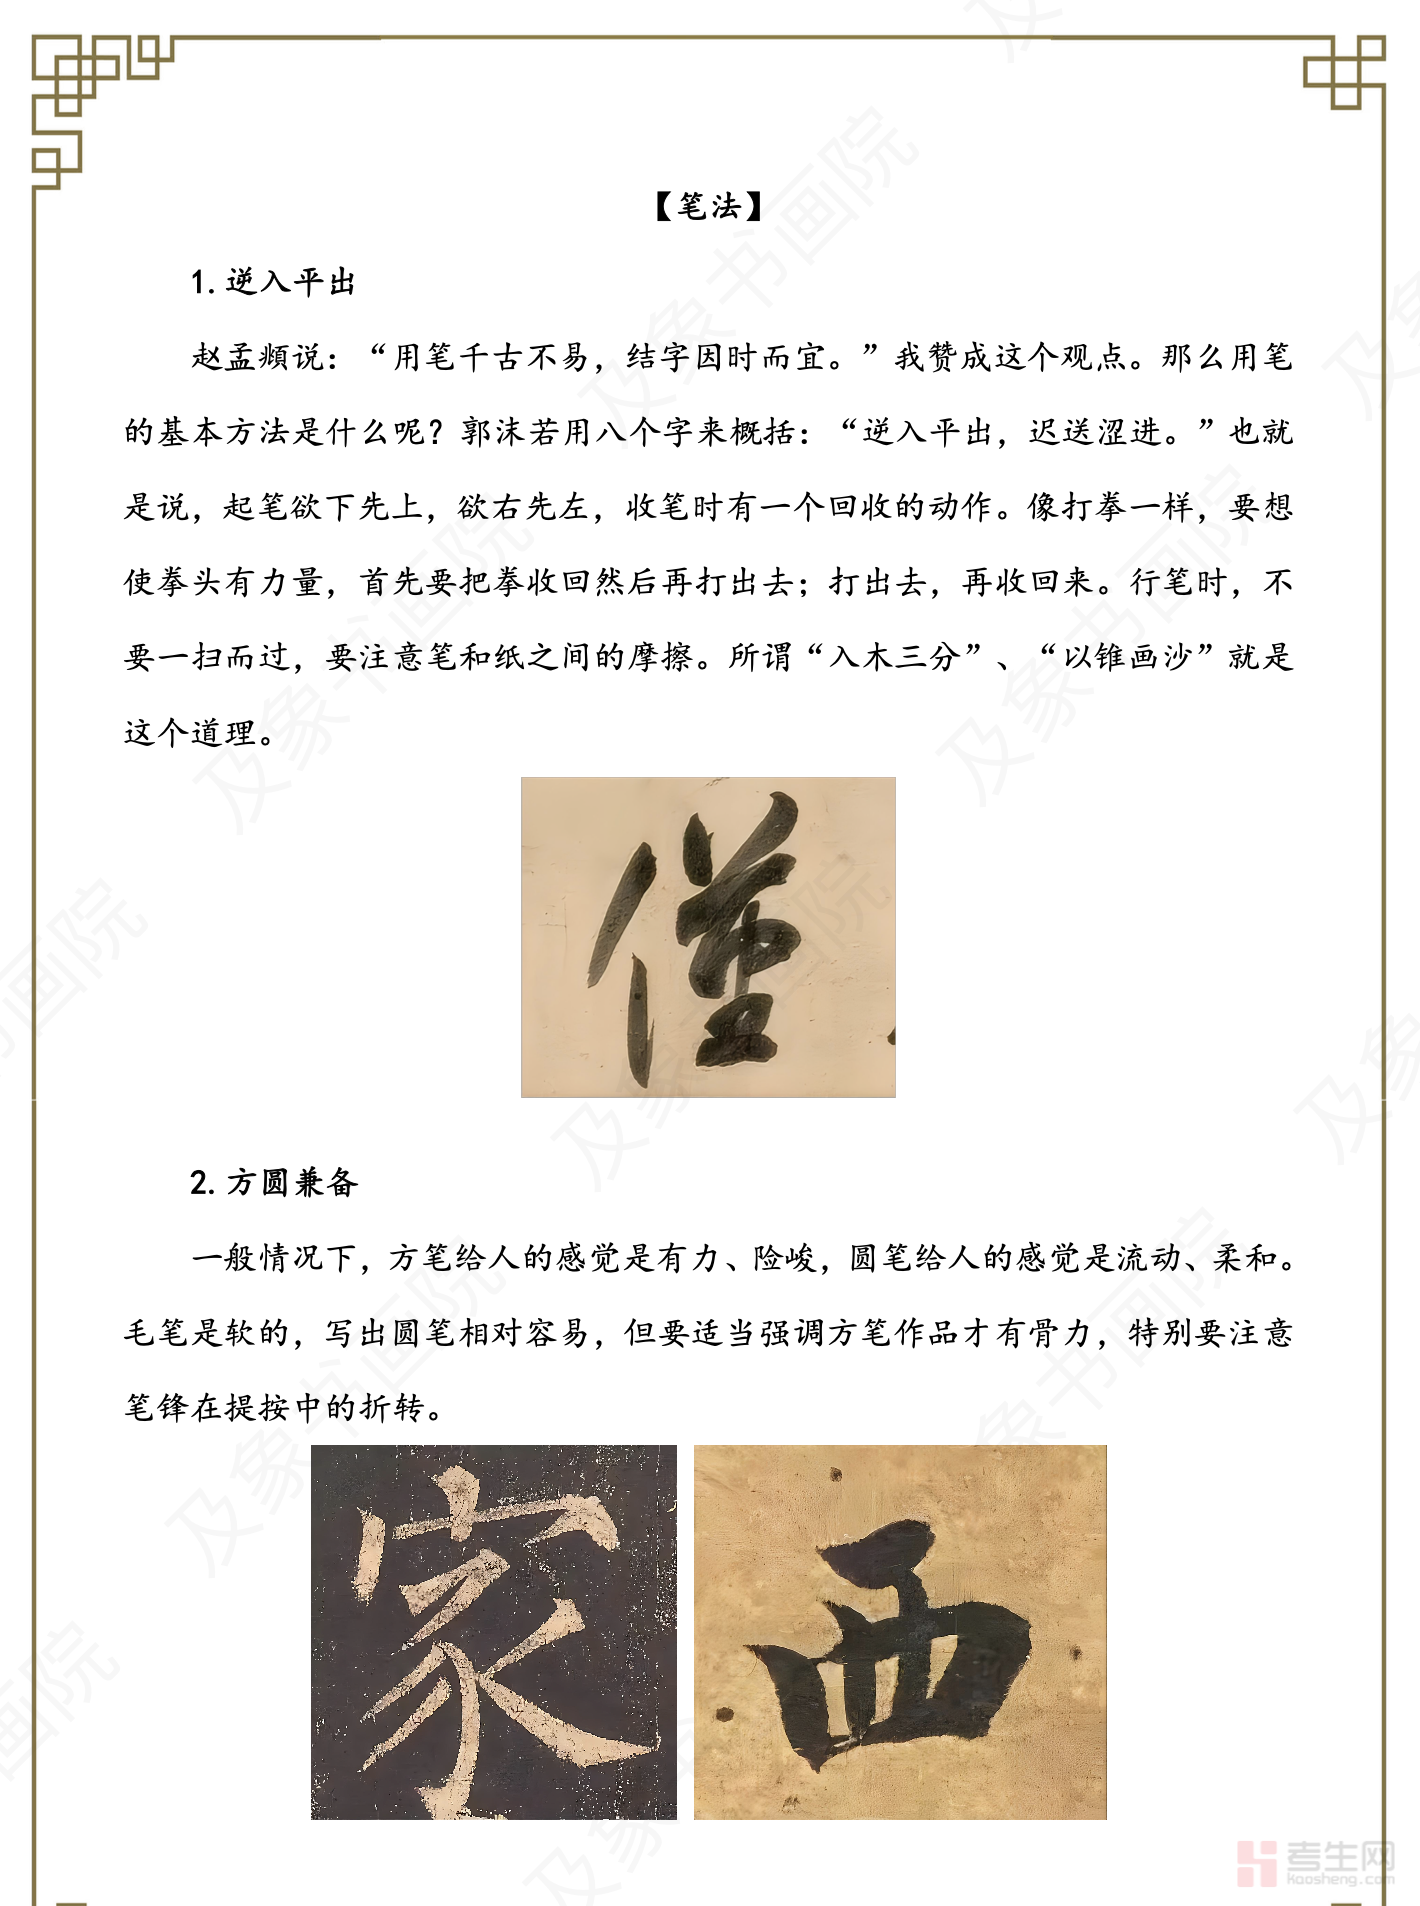 【笔法】
1.逆入平出
赵孟頫说：“用笔千古不易，结字因时而宜。”我赞成这个观点。那么用笔
的基本方法是什么呢？郭沫若用八个字来概括：“逆入平出，迟送涩进。”也就
是说，起笔欲下先上，欲右先左，收笔时有一个回收的动作。像打拳一样，要想
使拳头有力量，首先要把拳收回然后再打出去；打出去，再收回来。行笔时，不
要一扫而过，要注意笔和纸之间的摩擦。所谓“入木三分”、“以锥画沙”就是
这个道理。
僅
2.方圆兼备
一般情况下，方笔给人的感觉是有力、险峻，圆笔给人的感觉是流动、柔和。
毛笔是软的，写出圆笔相对容易，但要适当强调方笔作品才有骨力，特别要注意
笔锋在提按中的折转。
家 西
及象书画院
考生网
kaosheng.com